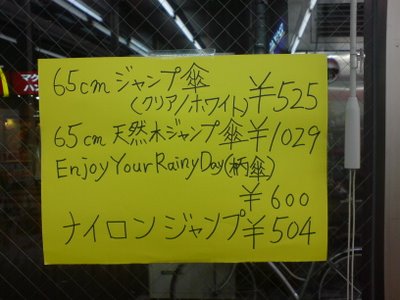 65cm ジャンプ傘
(クリア/ホワイト) ¥525
65cm 天然木ジャンプ傘 ¥1029
Enjoy Your Rainy Day (柄傘)
¥600
ナイロンジャンプ ¥504
マク
ハン